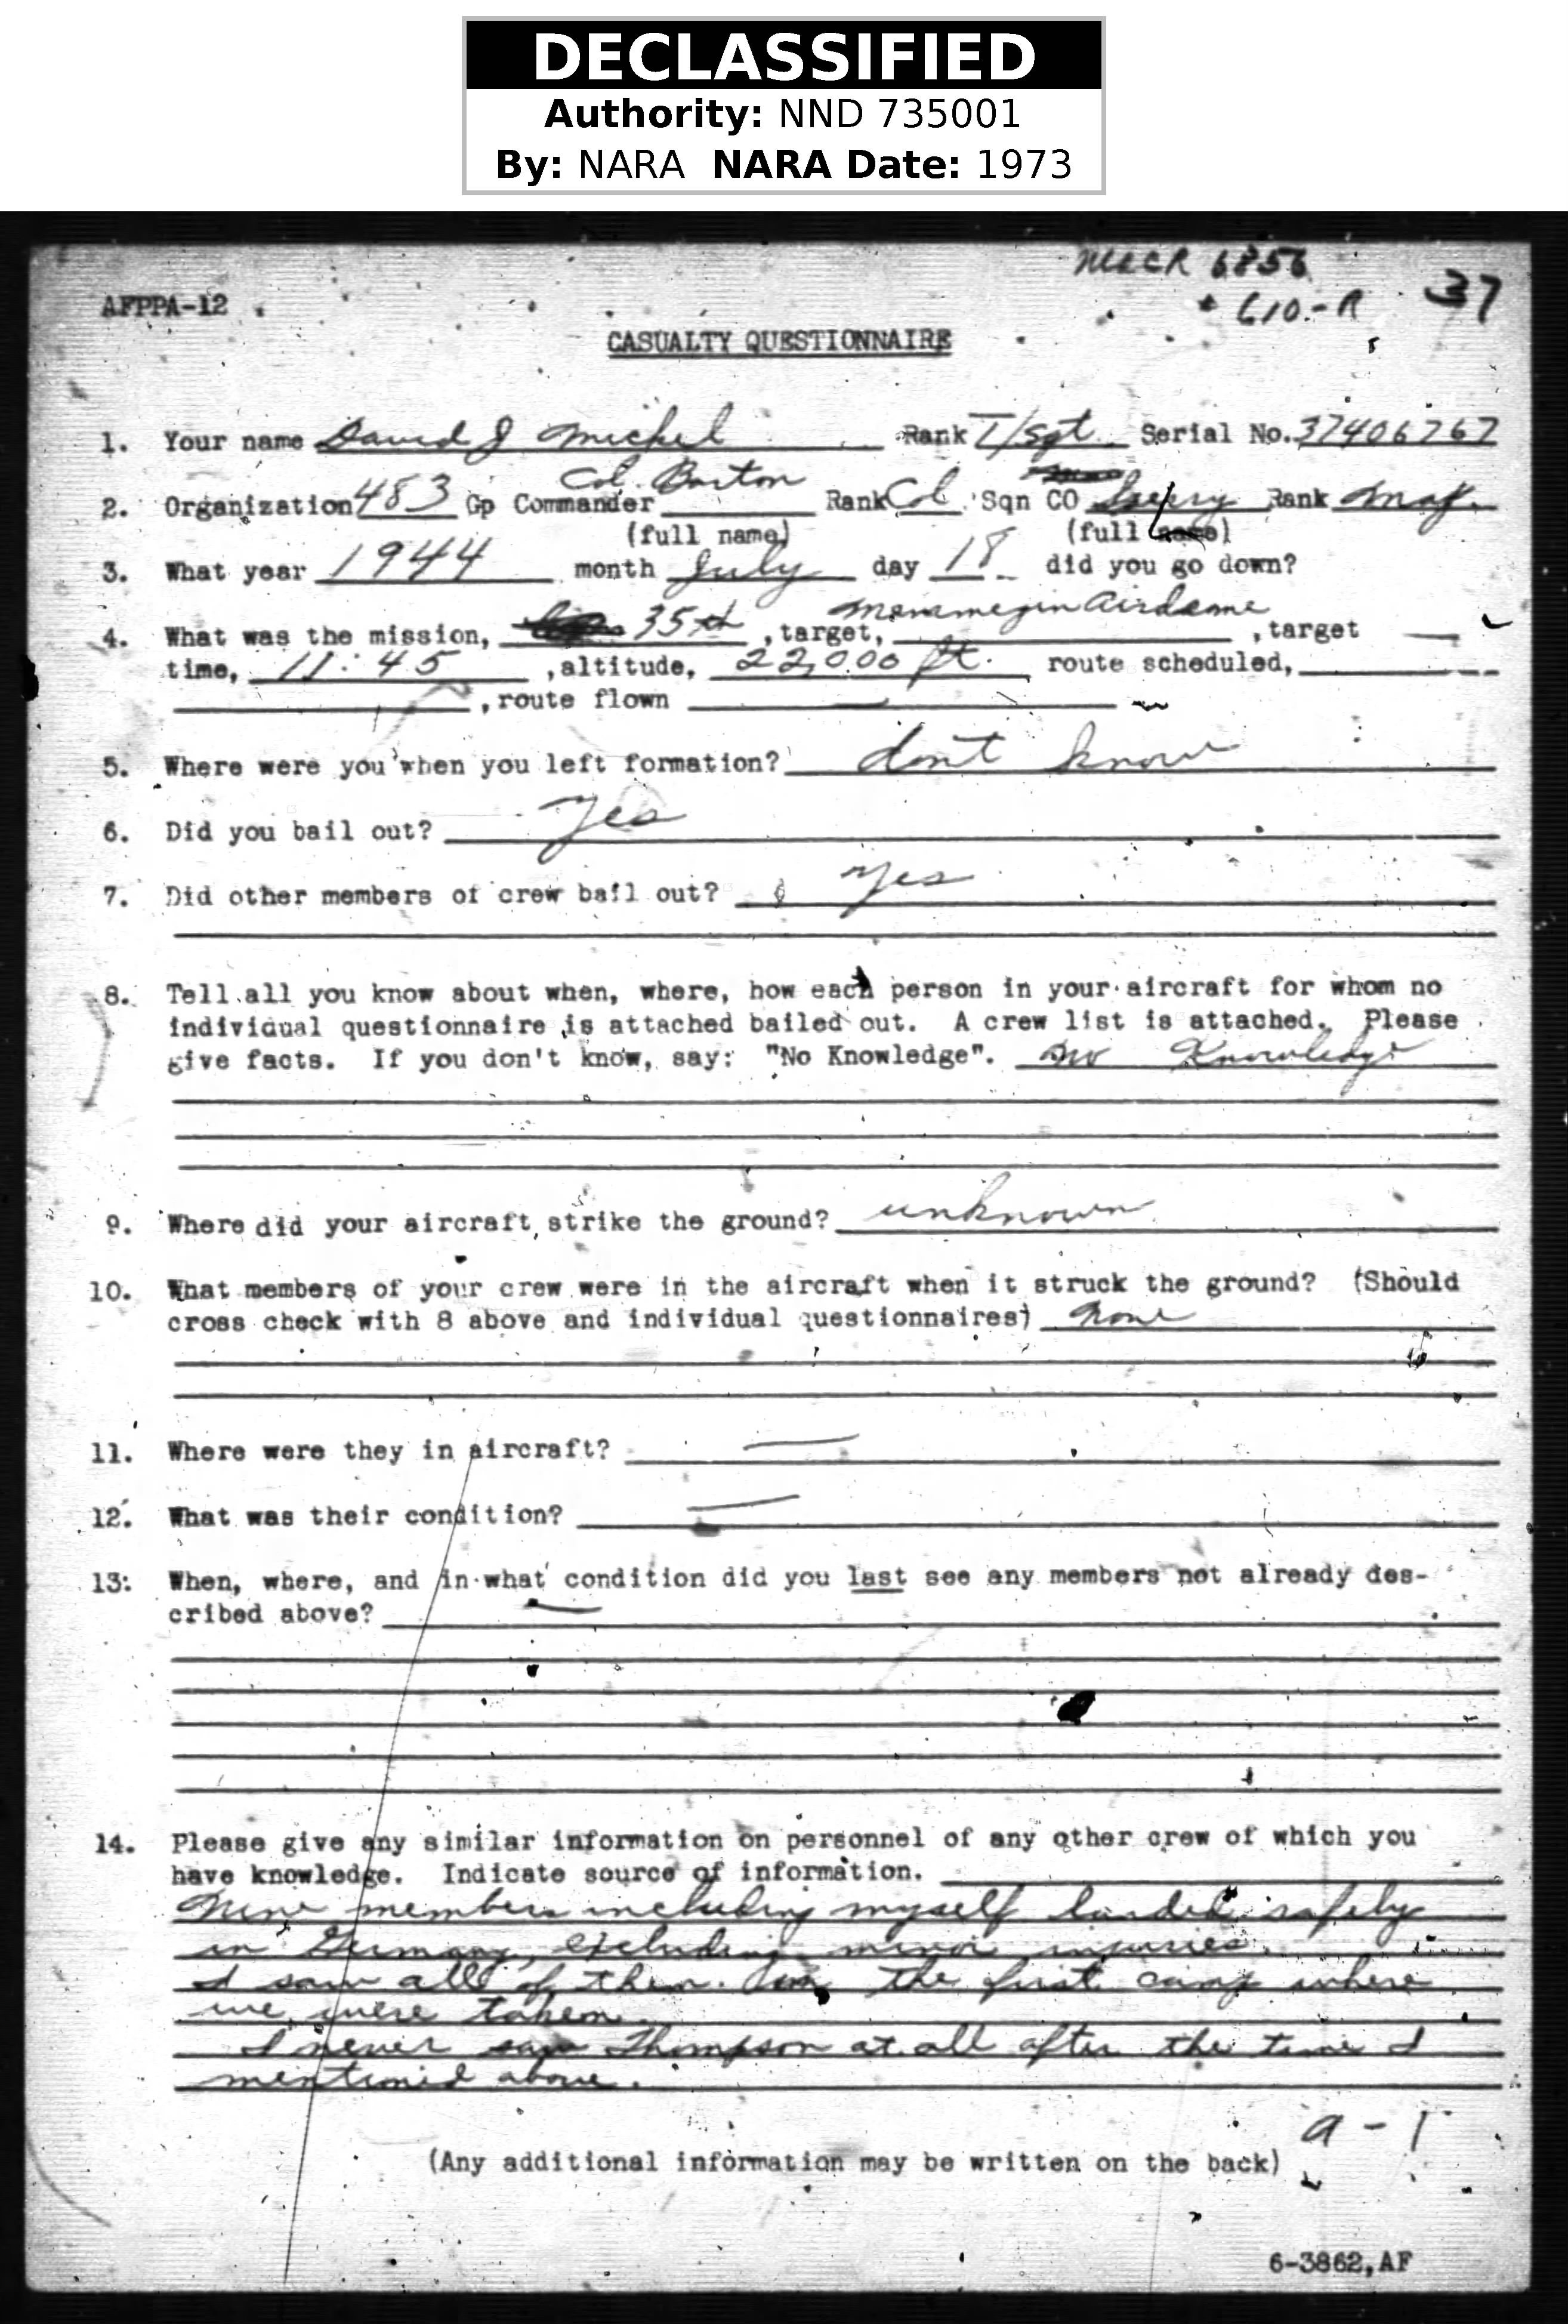 DECLASSIFIED
Authority: NND 735001
By: NARA NARA Date: 1973
MACR 6856
610-R 37
AFPPA-12
CASUALTY QUESTIONNAIRE
1. Your name David J Mickel Rank T/Sgt Serial No. 37406767
Col. Barton
2. Organization 483 Gp Commander Rank Col Sqn CO Rank Maj.
(full name) (full name)
3. What year 1944 month July day 18 did you go down?
4. What was the mission, 35th, target, Memmegin Airdome, target
time, 11:45, altitude, 22,000 ft. route scheduled,
, route flown
5. Where were you when you left formation? dont know
6. Did you bail out? Yes
7. Did other members of crew bail out? Yes
8. Tell all you know about when, where, how each person in your aircraft for whom no
individual questionnaire is attached bailed out. A crew list is attached. Please
give facts. If you don't know, say: "No Knowledge". No Knowledge
9. Where did your aircraft strike the ground? unknown
10. What members of your crew were in the aircraft when it struck the ground? (Should
cross check with 8 above and individual questionnaires) None
11. Where were they in aircraft? —
12. What was their condition? —
13: When, where, and in what condition did you last see any members not already des-
cribed above? —
14. Please give any similar information on personnel of any other crew of which you
have knowledge. Indicate source of information.
Nine members including myself landed safely
in Germany, excluding minor injuries.
I saw all of them in the first camp where
we were taken.
I never saw Thompson at all after the time I
mentioned above.
a-1
(Any additional information may be written on the back)
6-3862,AF